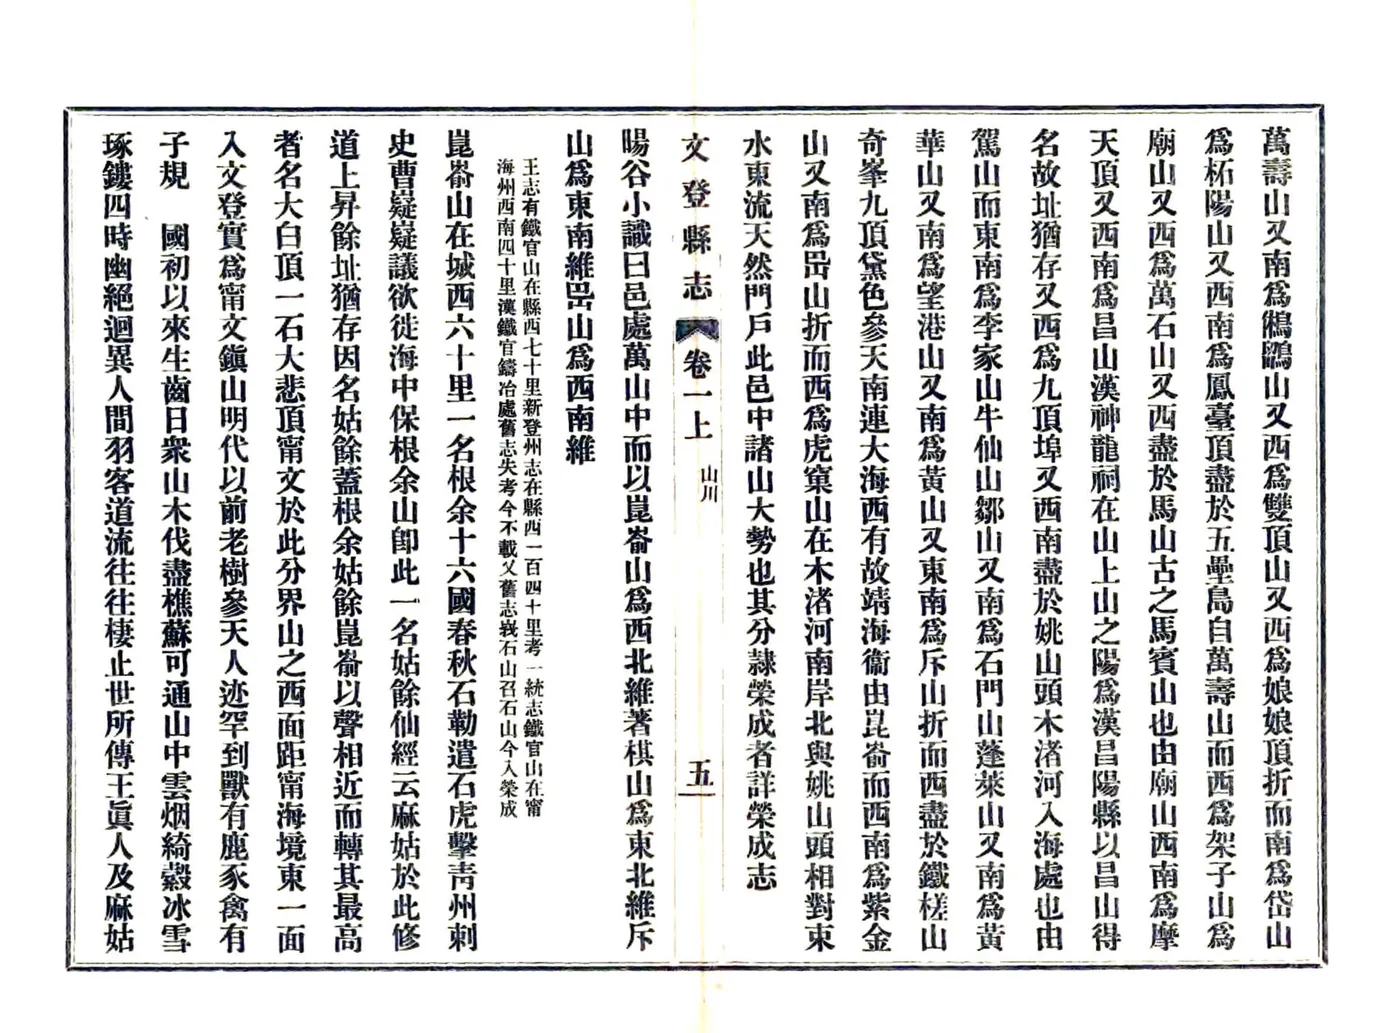 萬壽山又南爲鵂鶹山又西爲雙頂山又西爲娘娘頂折而南爲岱山
爲柘陽山又西南爲鳳臺頂盡於五壘島自萬壽山而西爲架子山爲
廟山又西爲萬石山又西盡於馬山古之馬賓山也由廟山西南爲摩
天頂又西南爲昌山漢神龍祠在山上山之陽爲漢昌陽縣以昌山得
名故址猶存又西爲九頂埠又西南盡於姚山頭木渚河入海處也由
駕山而東南爲李家山牛仙山鄒山又南爲石門山蓬萊山又南爲黃
華山又南爲望港山又南爲黃山又東南爲斥山折而西盡於鐵槎山
奇峯九頂黛色參天南連大海西有故靖海衞由崑嵛而西南爲紫金
山又南爲岊山折而西爲虎窠山在木渚河南岸北與姚山頭相對東
水東流天然門戶此邑中諸山大勢也其分隸榮成者詳榮成志
文登縣志
卷一上
山川
五
暘谷小識曰邑處萬山中而以崑嵛山爲西北維著棋山爲東北維斥
山爲東南維岊山爲西南維
王志有鐵官山在縣西七十里新登州志在縣西一百四十里考一統志鐵官山在甯
海州西南四十里漢鐵官鑄冶處舊志失考今不載又舊志峩石山召石山今入榮成
崑嵛山在城西六十里一名根余十六國春秋石勒遣石虎擊青州刺
史曹嶷嶷議欲徙海中保根余山卽此一名姑餘仙經云麻姑於此修
道上昇餘址猶存因名姑餘蓋根余姑餘崑嵛以聲相近而轉其最高
者名大白頂一石大悲頂甯文於此分界山之西面距甯海境東一面
入文登實爲甯文鎭山明代以前老樹參天人迹罕到獸有鹿豕禽有
子規　國初以來生齒日衆山木伐盡樵蘇可通山中雲烟綺縠冰雪
琢鏤四時幽絕迥異人間羽客道流往往棲止世所傳王眞人及麻姑